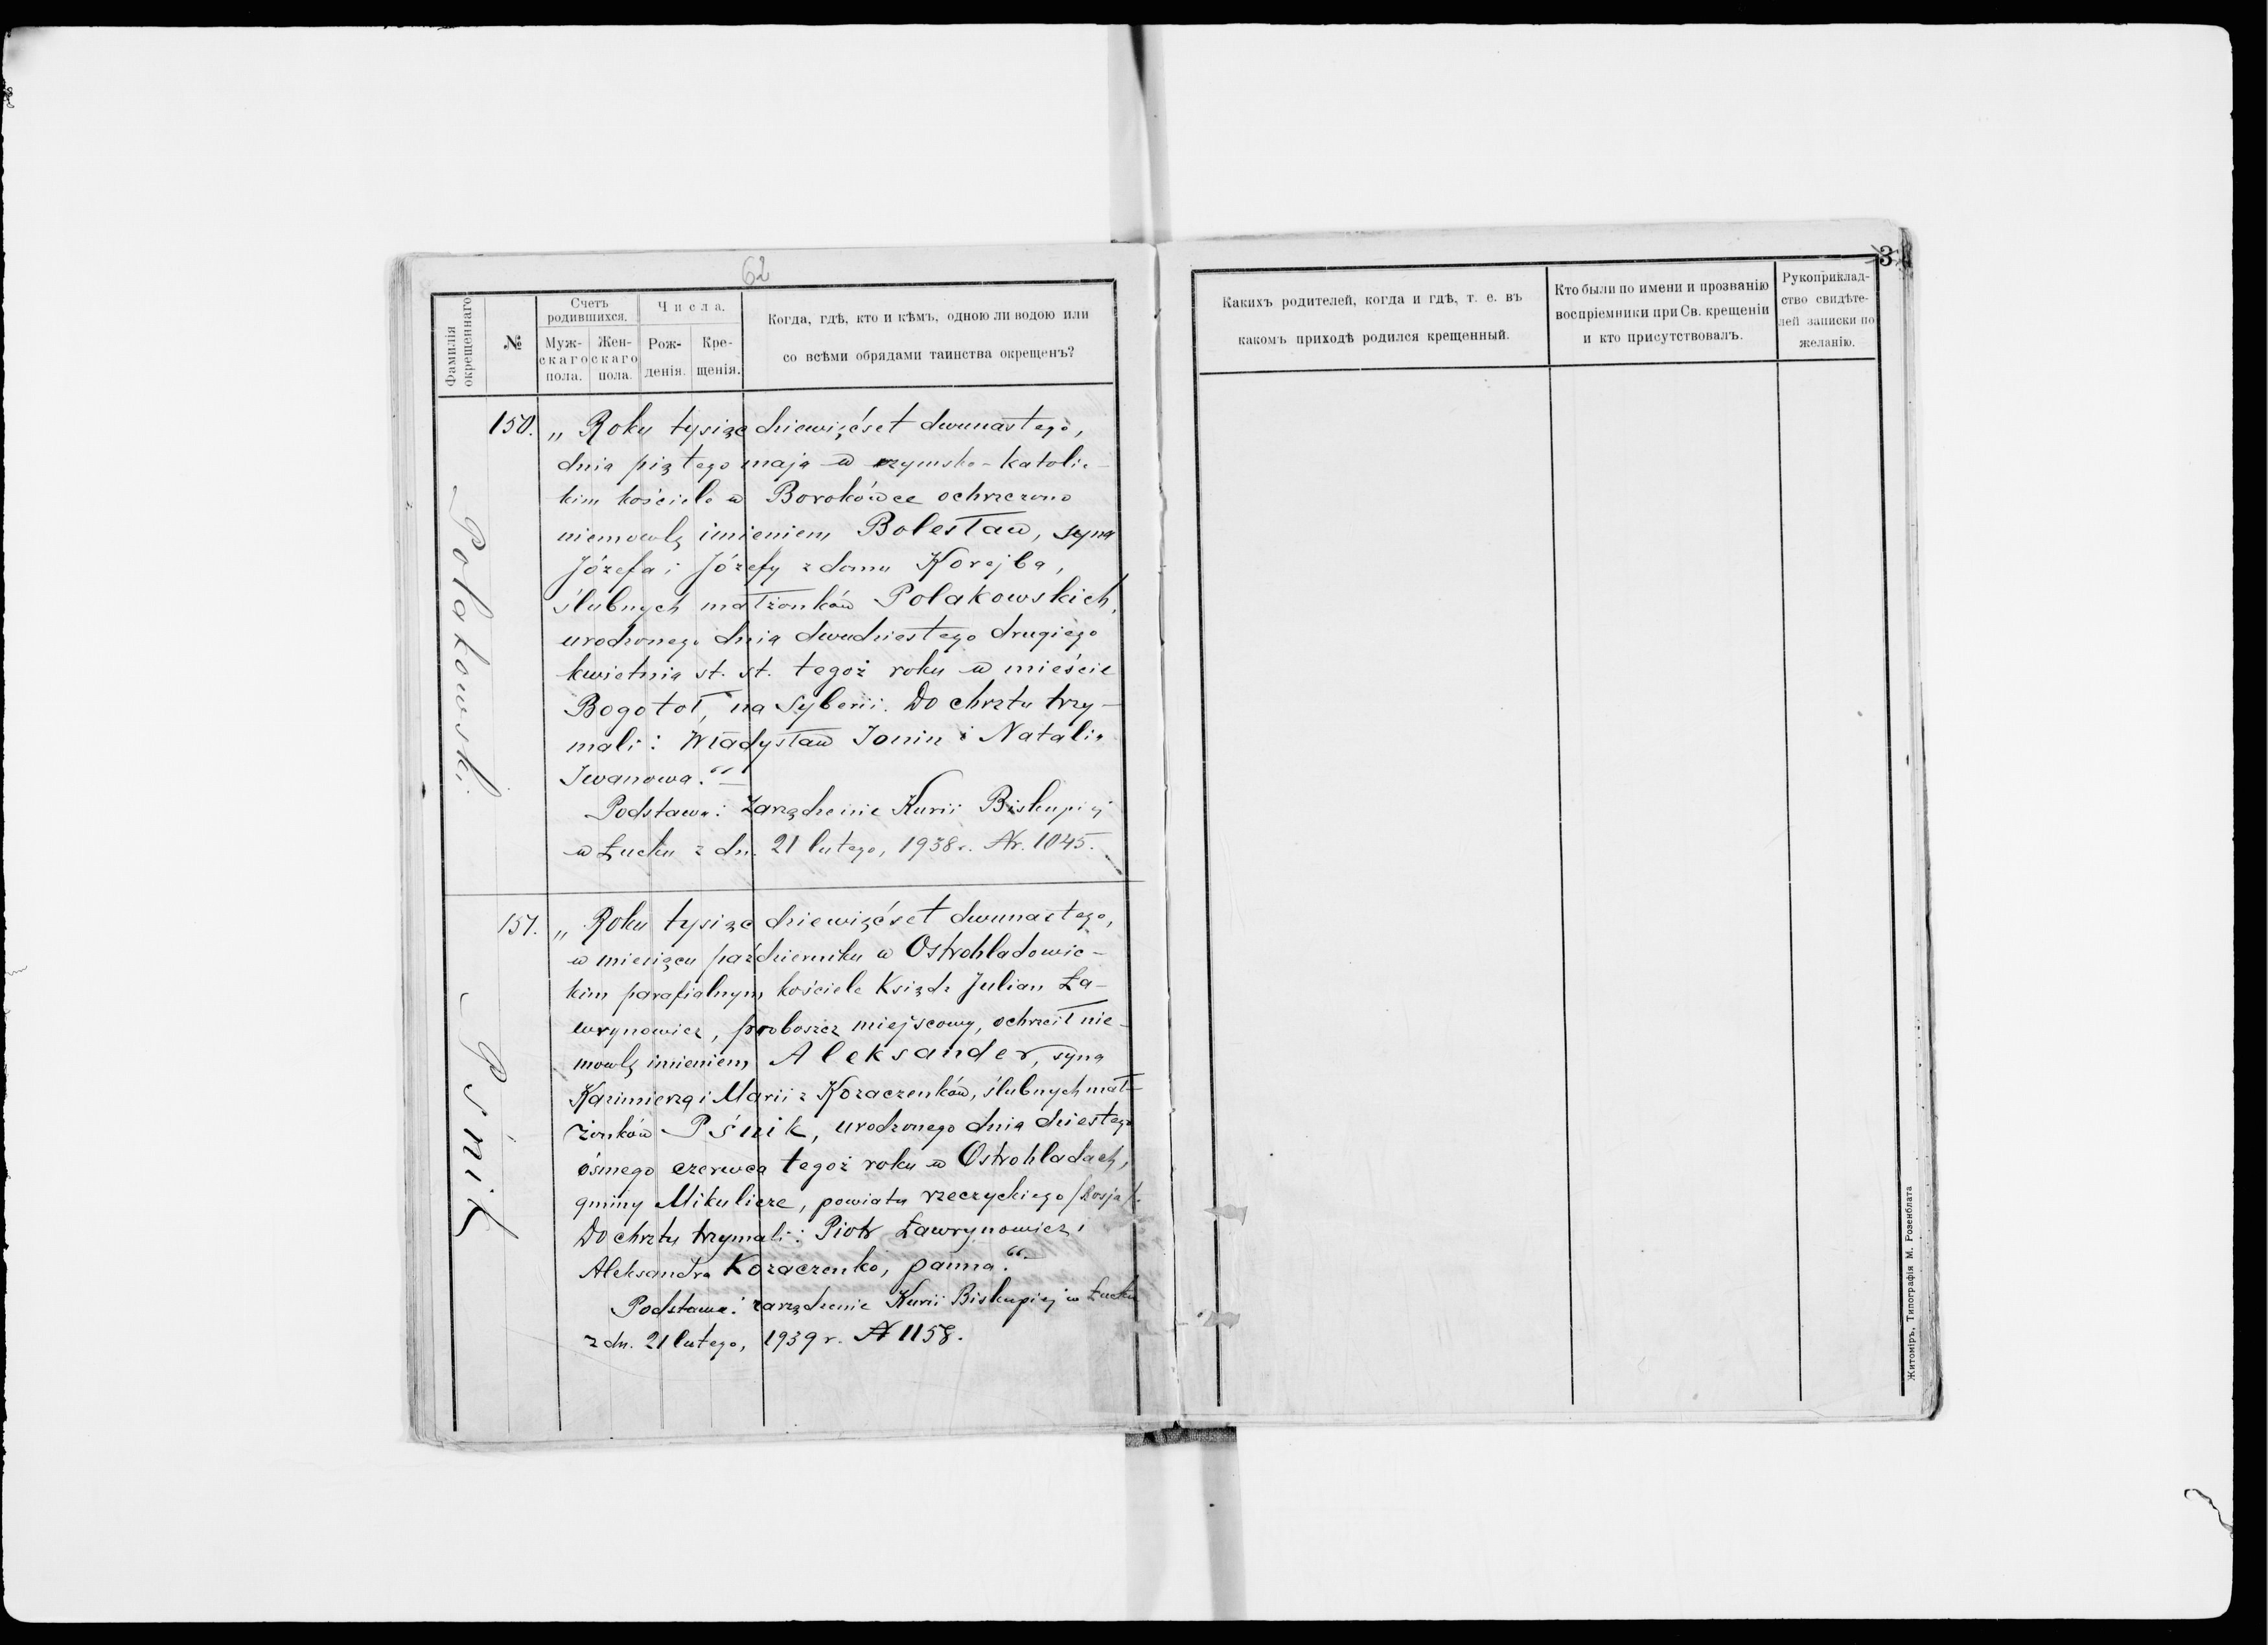 62
Фамилія окрещеннаго
№
Счетъ родившихся.
Муж-скаго пола.
Жен-скаго пола.
Числа.
Рож-денія.
Кре-щенія.
Когда, гдѣ, кто и кѣмъ, одною ли водою или
со всѣми обрядами таинства окрещенъ?
Polakowski
150.
„Roku tysiąc dziewięćset dwunastego,
dnia piątego maja w rzymsko-katolic-
kim kościele w Borokówce ochrzczono
niemowlę imieniem Bolesław, syna
Józefa i Józefy z domu Korejba,
ślubnych małżonków Polakowskich,
urodzonego dnia dwudziestego drugiego
kwietnia st. st. tegoż roku w mieście
Bogotoł, na Syberii. Do chrztu trzy-
mali: Władysław Jonin i Natalia
Iwanowa.“—
Podstawa: Zarządzenie Kurii Biskupiej
w Łucku z dn. 21 lutego, 1938 r. Nr. 1045.
Pśnik
151.
„Roku tysiąc dziewięćset dwunastego,
w miesiącu październiku w Ostrohladowic-
kim parafialnym kościele Ksiądz Julian Ła-
wrynowicz, proboszcz miejscowy, ochrzcił nie-
mowlę imieniem Aleksander, syna
Kazimierza i Marii z Kozaczenków, ślubnych mał-
żonków Pśnik, urodzonego dnia dziestego
ósmego czerwca tegoż roku w Ostrohladach,
gminy Mikulicze, powiatu rzeczyckiego /Rosja/.
Do chrztu trzymali: Piotr Ławrynowicz i
Aleksandra Kozaczenko, panna.“—
Podstawa: zarządzenie Kurii Biskupiej w Łucku
z dn. 21 lutego, 1939 r. N 1158.
3
Какихъ родителей, когда и гдѣ, т. е. въ
какомъ приходѣ родился крещенный.
Кто были по имени и прозванію
воспріемники при Св. крещеніи
и кто присутствовалъ.
Рукоприклад-
ство свидѣте-
лей записки по
желанію.
Житоміръ, Типографія М. Розенблата